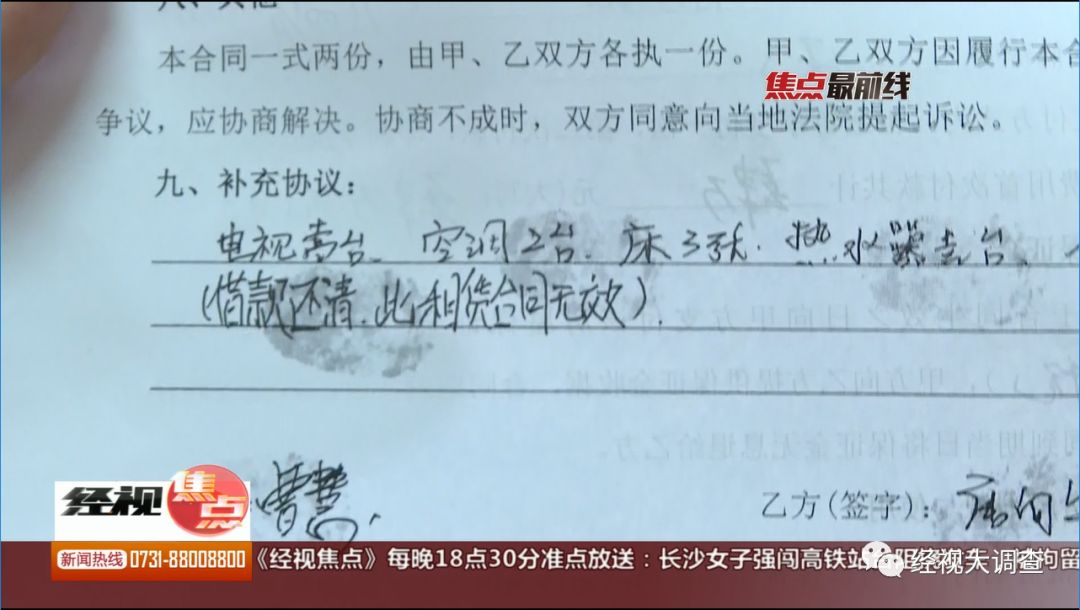 八、其他
本合同一式两份，由甲、乙双方各执一份。甲、乙双方因履行本合
焦点最前线
争议，应协商解决。协商不成时，双方同意向当地法院提起诉讼。
九、补充协议：
电视壹台、空调2台.床3张.热水器壹台、
(借款还清.此租赁合同无效).
曾慧.
乙方(签字)：
经视焦点
新闻热线 0731-88008800 《经视焦点》每晚18点30分准点放送：长沙女子强闯高铁站
拘留
经视大调查